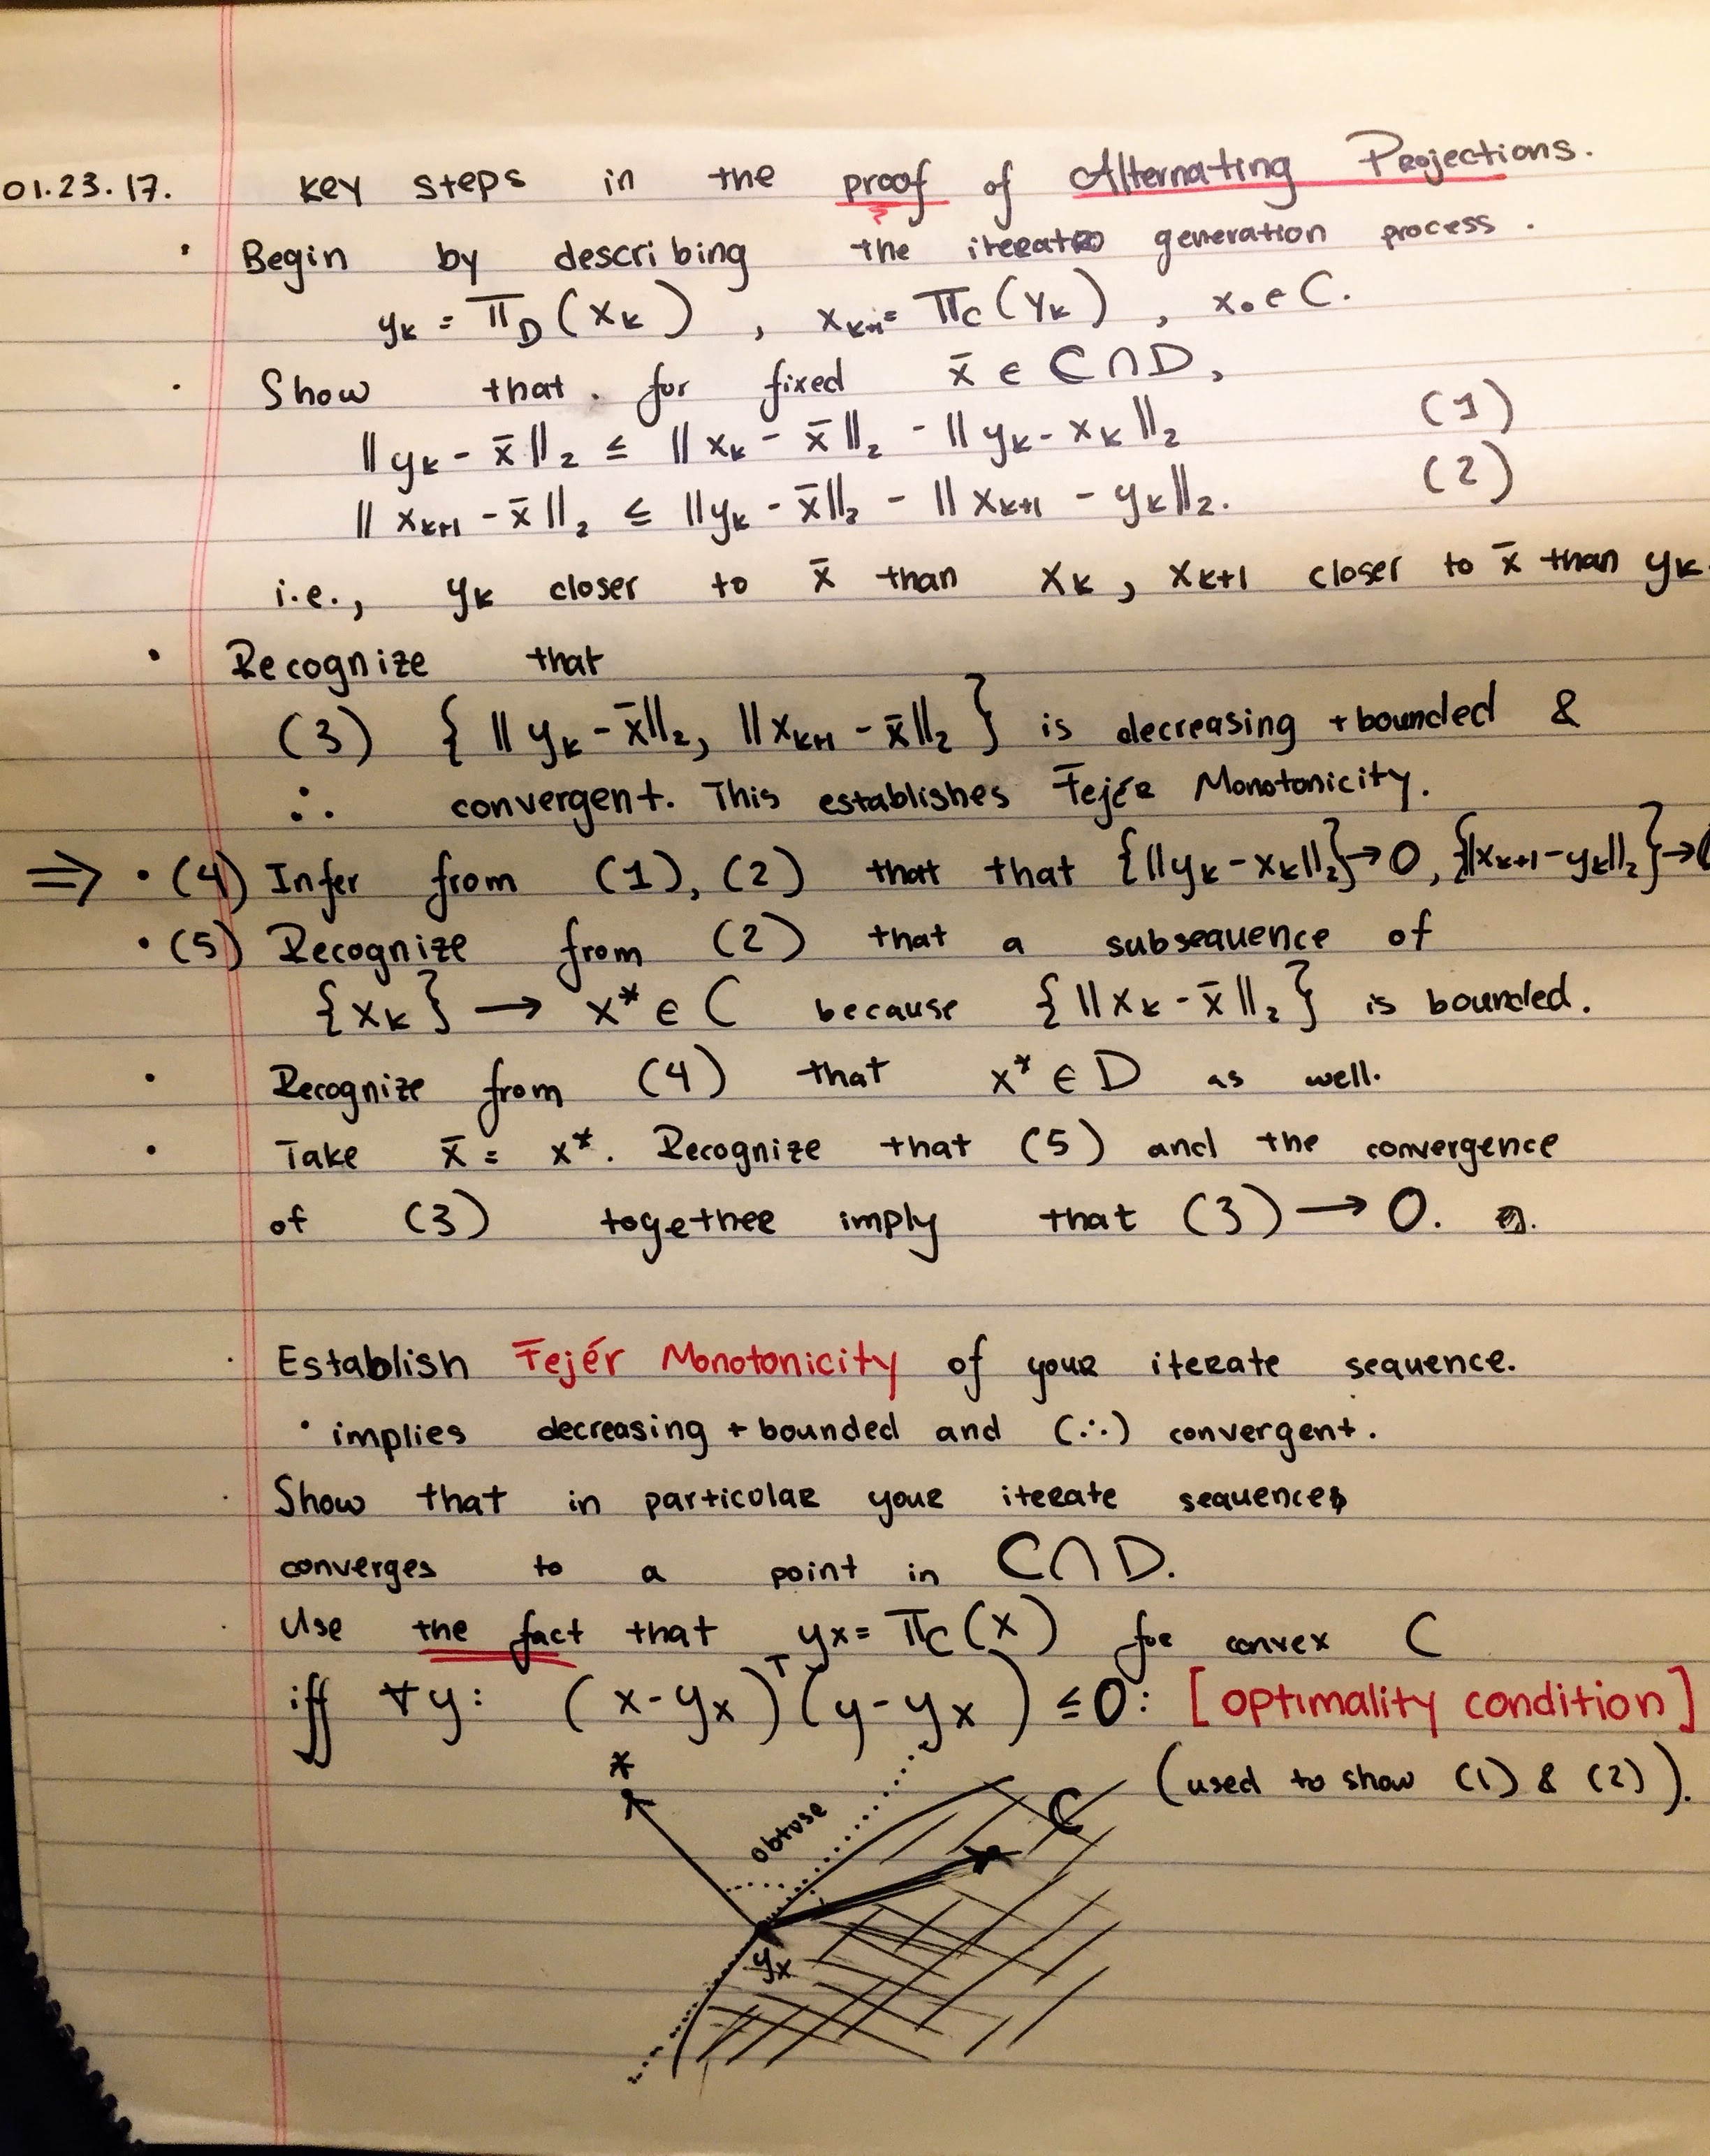 01.23.17. Key steps in the proof of Alternating Projections.
· Begin by describing the iterate generation process.
y_k = Π_D(x_k), x_{k+1} = Π_C(y_k), x_0 ∈ C.
· Show that for fixed x̄ ∈ C∩D,
‖y_k - x̄‖_2 ≤ ‖x_k - x̄‖_2 - ‖y_k - x_k‖_2 (1)
‖x_{k+1} - x̄‖_2 ≤ ‖y_k - x̄‖_2 - ‖x_{k+1} - y_k‖_2. (2)
i.e., y_k closer to x̄ than x_k, x_{k+1} closer to x̄ than y_k.
· Recognize that
(3) {‖y_k - x̄‖_2, ‖x_{k+1} - x̄‖_2} is decreasing + bounded &
∴ convergent. This establishes Fejér Monotonicity.
⇒ · (4) Infer from (1), (2) that that {‖y_k - x_k‖_2} → 0, {‖x_{k+1} - y_k‖_2} → 0
· (5) Recognize from (2) that a subsequence of
{x_k} → x* ∈ C because {‖x_k - x̄‖_2} is bounded.
· Recognize from (4) that x* ∈ D as well.
· Take x̄ = x*. Recognize that (5) and the convergence
of (3) together imply that (3) → 0.
· Establish Fejér Monotonicity of your iterate sequence.
· implies decreasing + bounded and (∴) convergent.
· Show that in particular your iterate sequences
converges to a point in C∩D.
· Use the fact that y_x = Π_C(x) for convex C
iff ∀y: (x-y_x)^T(y-y_x) ≤ 0: [optimality condition]
(used to show (1) & (2)).
obtuse
C
y_x